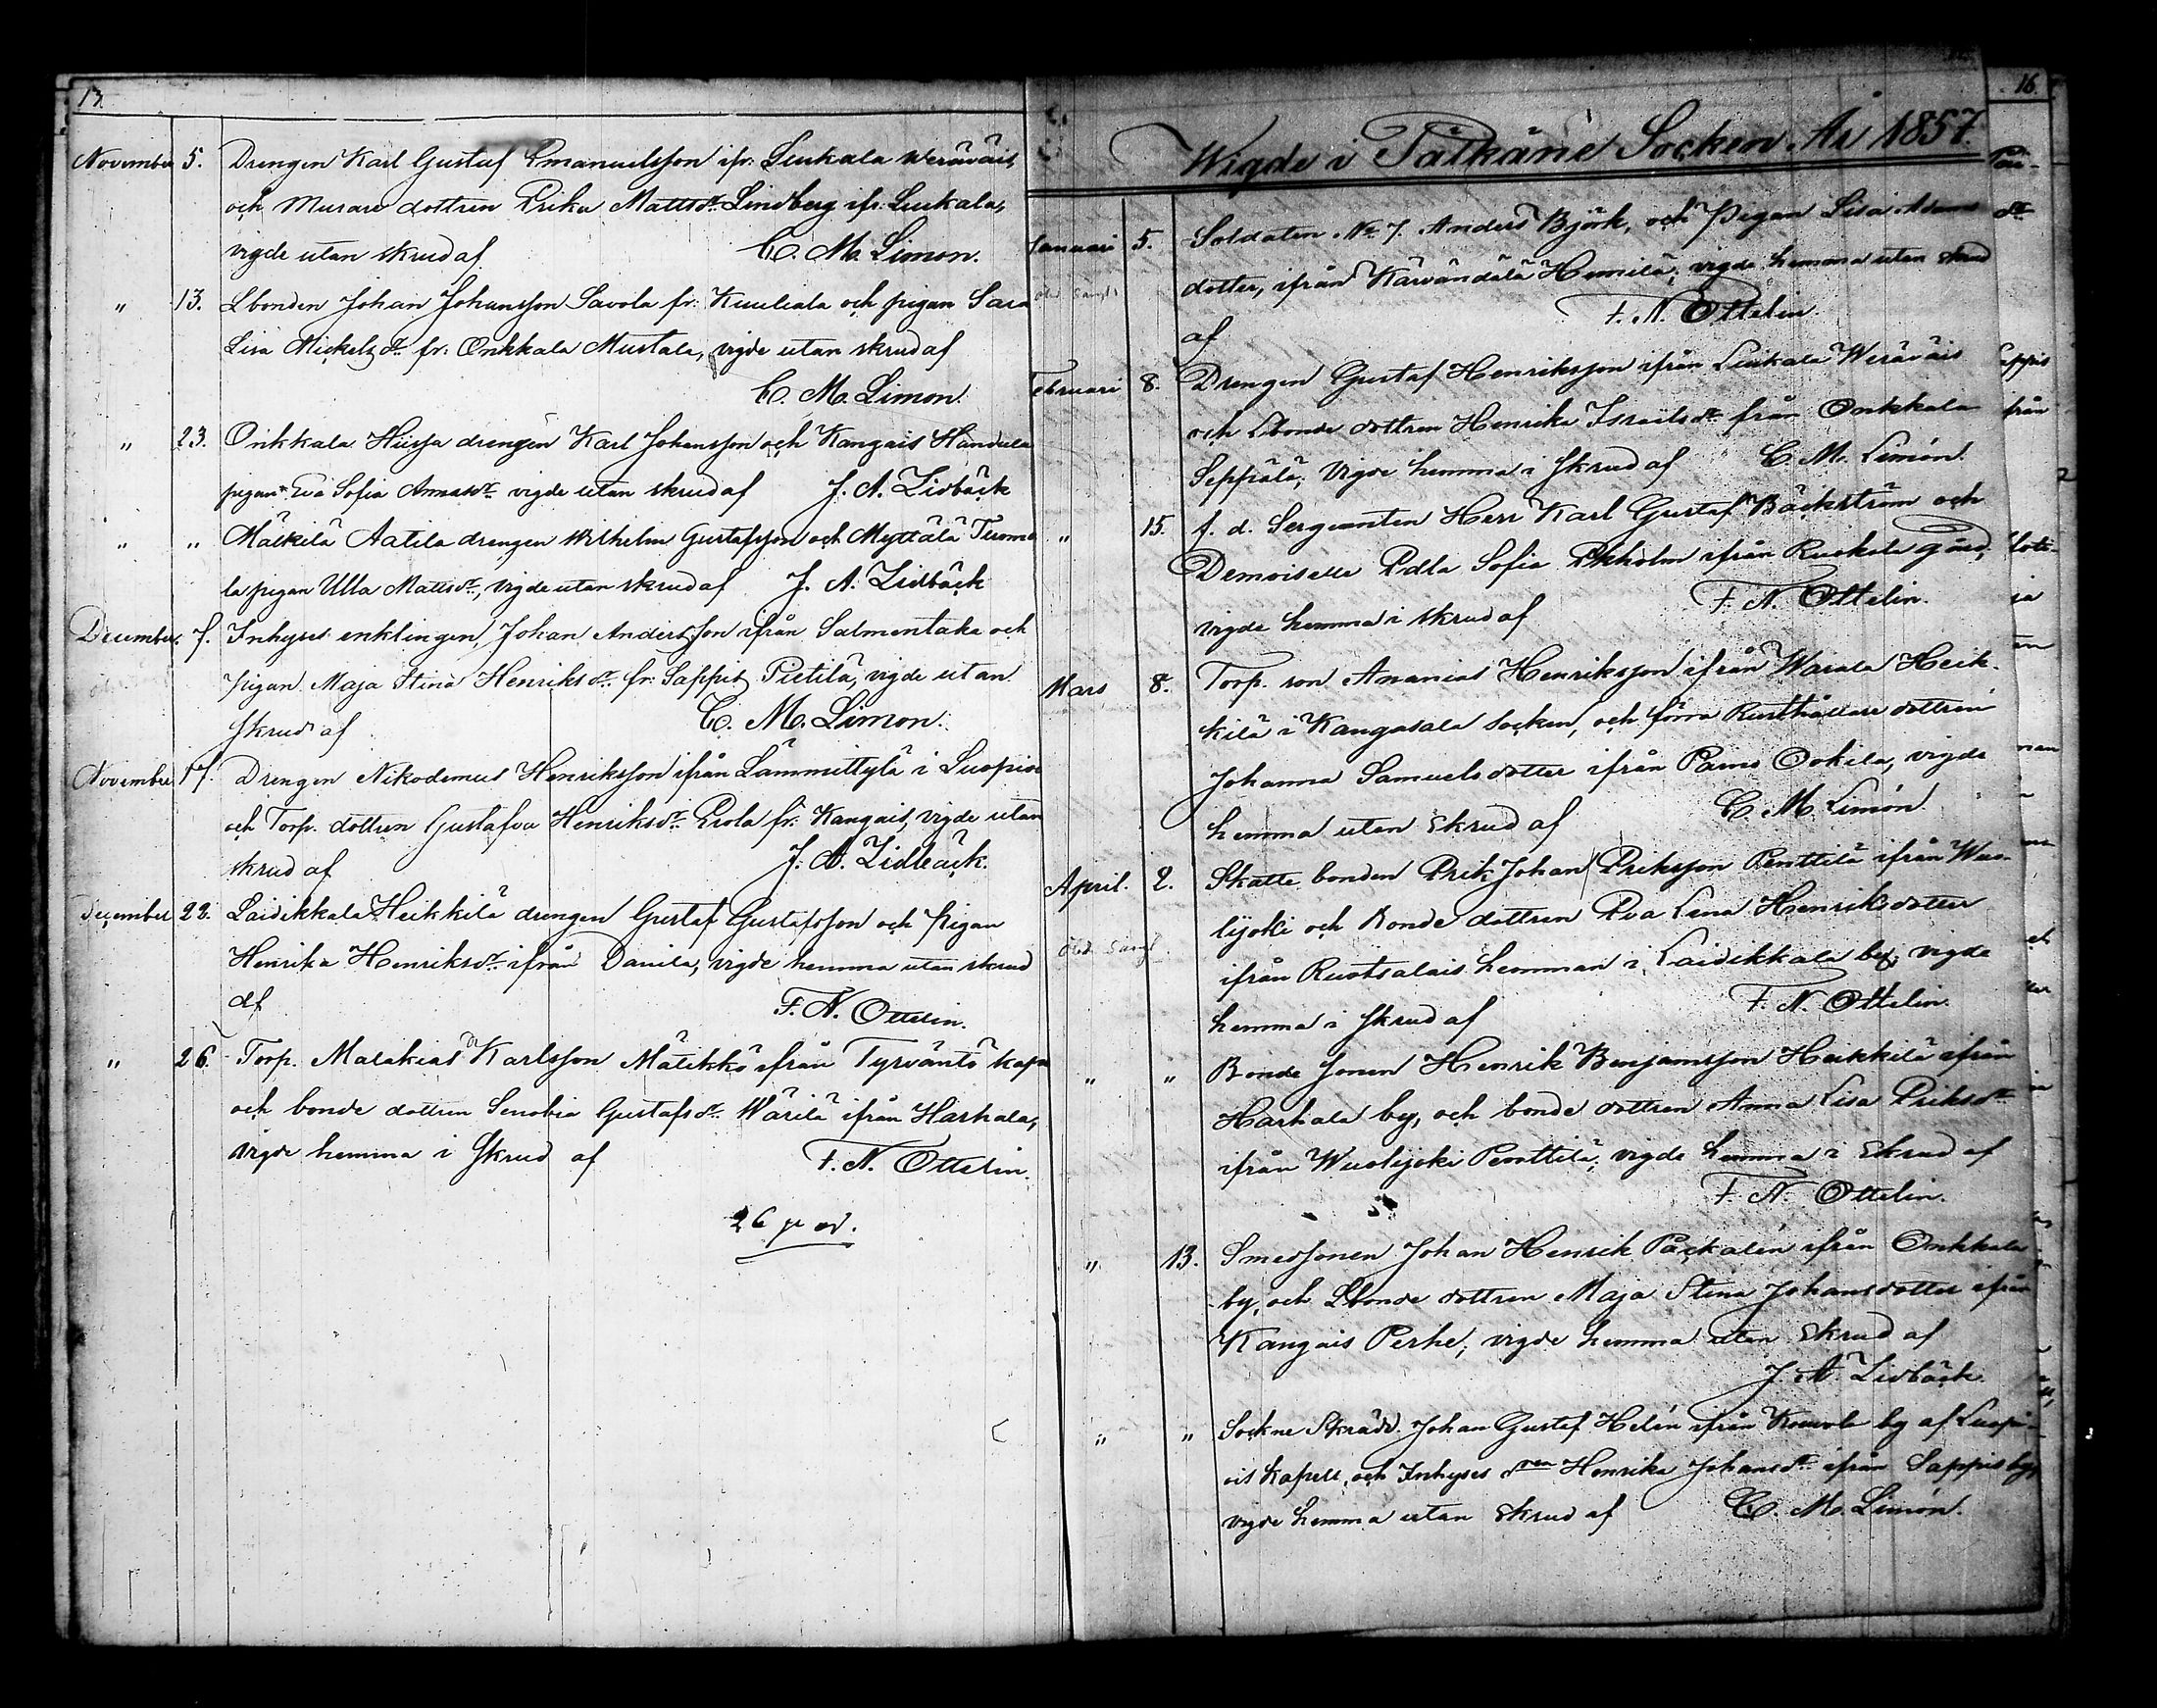 13.
November 5. Drengen Karl Gustaf Emanuelsson ifr: Luikala Weräväis,
och Murare dottren Erika Mattsdr. Lindberg ifr: Luikala,
vigde utan skrud af C. M. Limon.
" 13. Lbonden Johan Johansson Savola fr: Kuuliala och pigan Sara
Lisa Mickelsdr. fr: Onkkala Mustala, vigde utan skrud af
C. M. Limon.
" 23. Onkkala Hiissa drengen Karl Johansson och Kangais Handula
pigan Eva Sofia Annasdr. vigde utan skrud af J. A. Lidbäck
" " Mälkilä Aatila drengen Wilhelm Gustafsson och Myttälä Tuoma
la pigan Ulla Mattsdr., vigde utan skrud af J. A. Lidbäck
December. 7. Inhyses enklingen, Johan Andersson ifrån Salmentaka och
pigan Maja Stina Henriksdr. fr: Sappis Pietilä, vigde utan
skrud af C. M. Limon.
November 17. Drengen Nikodemus Henriksson ifrån Lammittylä i Luopiois
och Torp. dottren Gustafva Henriksdr. Erola fr: Kangais, vigde utan
skrud af J. A. Lidbäck.
December 22. Laidikkala Heikkilä drengen Gustaf Gustafsson och Pigan
Henrika Henriksdr. ifrån Danila, vigde hemma utan skrud
af F. N. Ottelin.
" 26. Torp. Malakias Karlsson Mälikkö ifrån Tyrväntö kapell
och bonde dottren Senobia Gustafsdr. Wärilä ifrån Harhala,
vigde hemma i Skrud af F. N. Ottelin.
26 par.
16.
Wigde i Pälkäne Socken År 1857.
Januari 5. Soldaten No 7. Anders Björk, och Pigan Lisa Adams
dotter, ifrån Kärvändälä Hemilä; vigde hemma utan skrud
af F. N. Ottelin.
Februari 8. Drengen Gustaf Henriksson ifrån Luikala Weräväis
och Lbonde dottren Henrika Israelsdr. från Onkkala
Seppälä; Vigde hemma i Skrud af C. M. Limón.
" 15. f. d. Sergeanten Herr Karl Gustaf Bäckström och
Demoiselle Edla Sofia Ekholm ifrån Ruokola gård;
vigde hemma i skrud af F. N. Ottelin.
Mars 8. Torp. son Ananias Henriksson ifrån Warala Heik-
kilä i Kangasala Socken, och förra Rusthållare dottren
Johanna Samuelsdotter ifrån Painos Ookila, vigde
hemma utan Skrud af C. M. Limón
April. 2. Skatte bonden Erik Johan Eriksson Penttilä ifrån Wuo-
lijoki och Bonde dottren Eva Lena Henriksdotter
ifrån Ruotsalais hemman i Laidikkala by; vigde
hemma i Skrud af F. N. Ottelin.
" " Bonde Sonen Henrik Benjamsson Heikkilä ifrån
Harhala by, och bonde dottren Anna Lisa Eriksdr.
ifrån Wuolijoki Penttilä; vigde hemma i Skrud af
F. N. Ottelin.
" 13. Smedsonen Johan Henrik Päckalén ifrån Onkkala
by, och Lbonde dottren Maja Stina Johansdotter ifrån
Kangais Perhe; vigde hemma utan Skrud af
J. A. Lidbäck.
" " Sockne Skrädd. Johan Gustaf Helén ifrån Kouvola by af Luopi-
ois kapell, och Inhyses dren Henrika Johansdr. ifrån Sappis by;
vigde hemma utan Skrud af C. M. Limón.